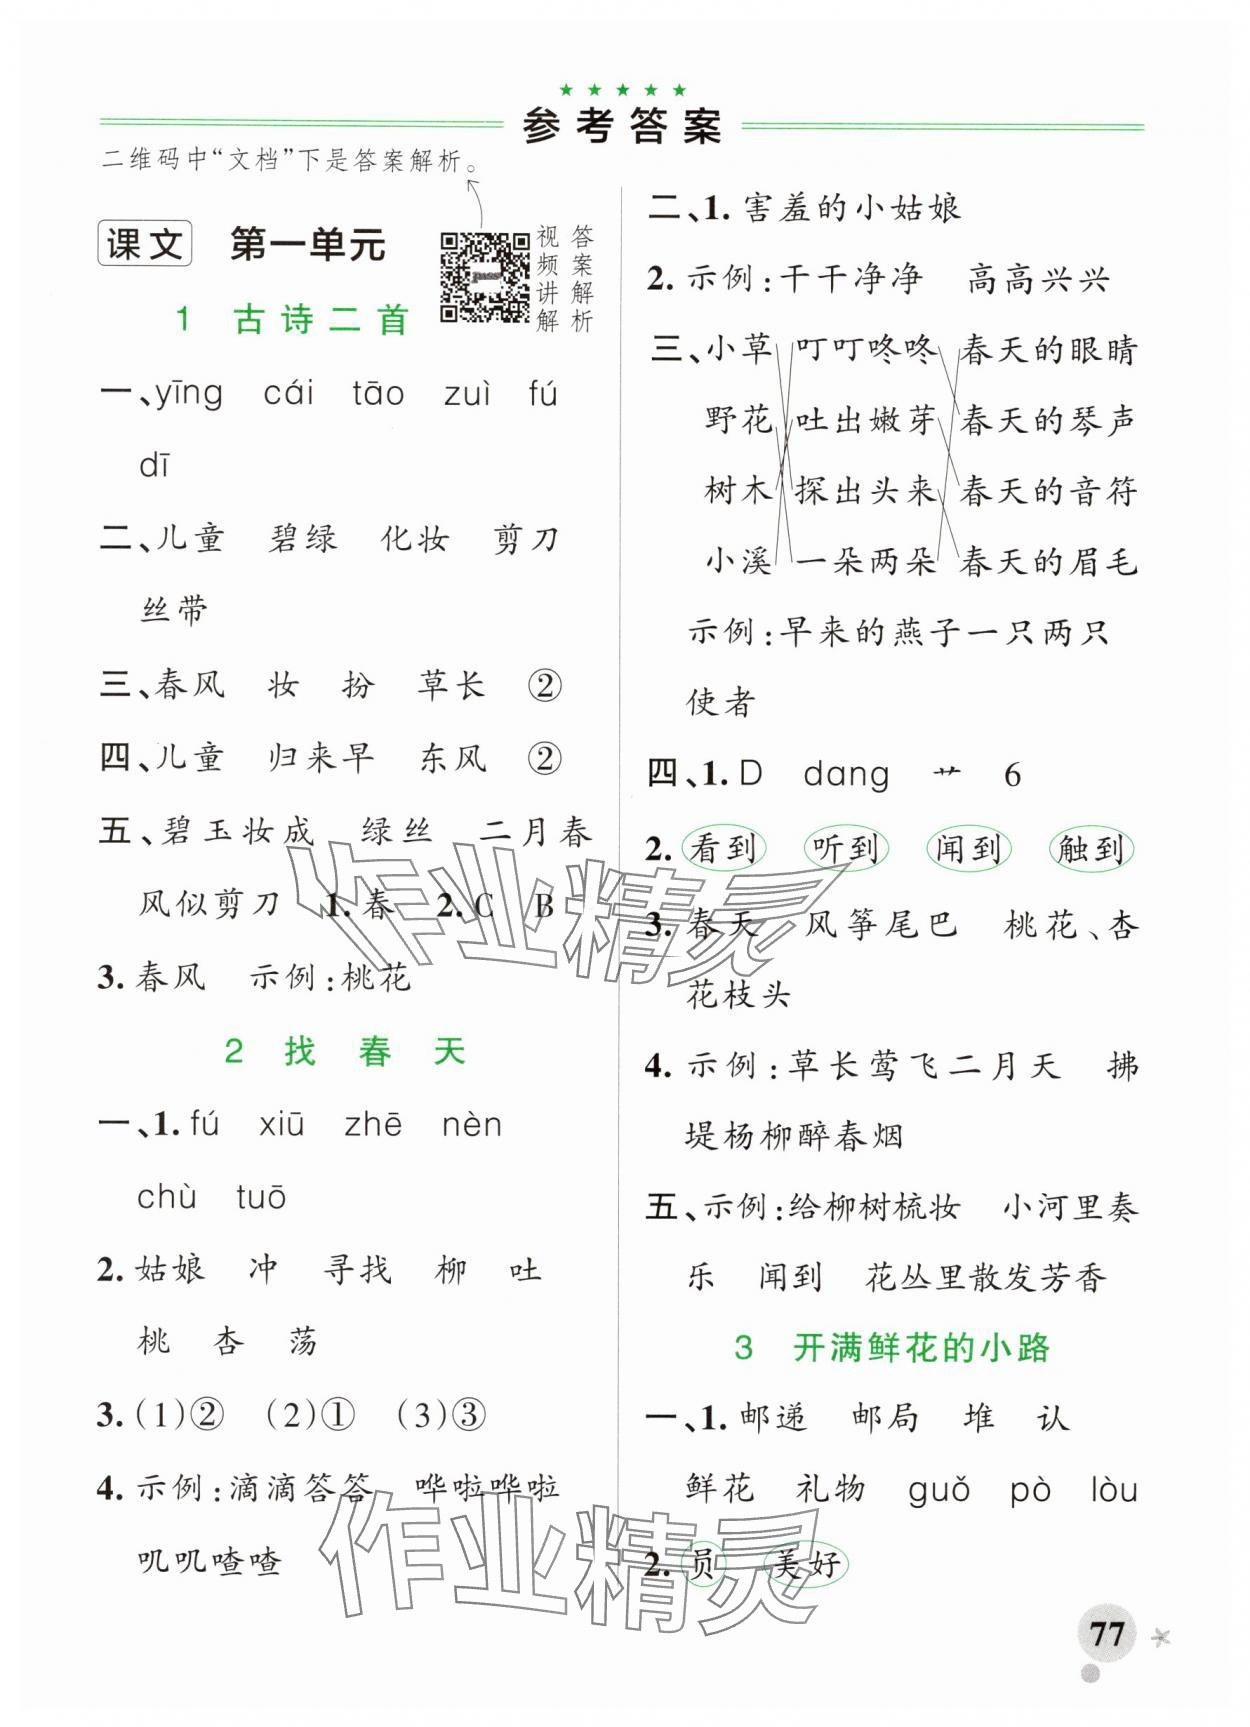 参考答案
二维码中“文档”下是答案解析。
课文 第一单元
答案解析
视频讲解
1 古诗二首
一、yīng cái tāo zuì fú
dī
二、儿童 碧绿 化妆 剪刀
丝带
三、春风 妆 扮 草长 ②
四、儿童 归来早 东风 ②
五、碧玉妆成 绿丝 二月春
风似剪刀 1. 春 2. C B
3. 春风 示例:桃花
2 找春天
一、1. fú xiū zhē nèn
chù tuō
2. 姑娘 冲 寻找 柳 吐
桃 杏 荡
3. (1)② (2)① (3)③
4. 示例:滴滴答答 哗啦哗啦
叽叽喳喳
二、1. 害羞的小姑娘
2. 示例:干干净净 高高兴兴
三、小草 叮叮咚咚 春天的眼睛
野花 吐出嫩芽 春天的琴声
树木 探出头来 春天的音符
小溪 一朵两朵 春天的眉毛
示例:早来的燕子一只两只
使者
四、1. D dang 艹 6
2. 看到 听到 闻到 触到
3. 春天 风筝尾巴 桃花、杏
花枝头
4. 示例:草长莺飞二月天 拂
堤杨柳醉春烟
五、示例:给柳树梳妆 小河里奏
乐 闻到 花丛里散发芳香
3 开满鲜花的小路
一、1. 邮递 邮局 堆 认
鲜花 礼物 guǒ pò lòu
2. 员 美好
77
作业精灵
作业精灵